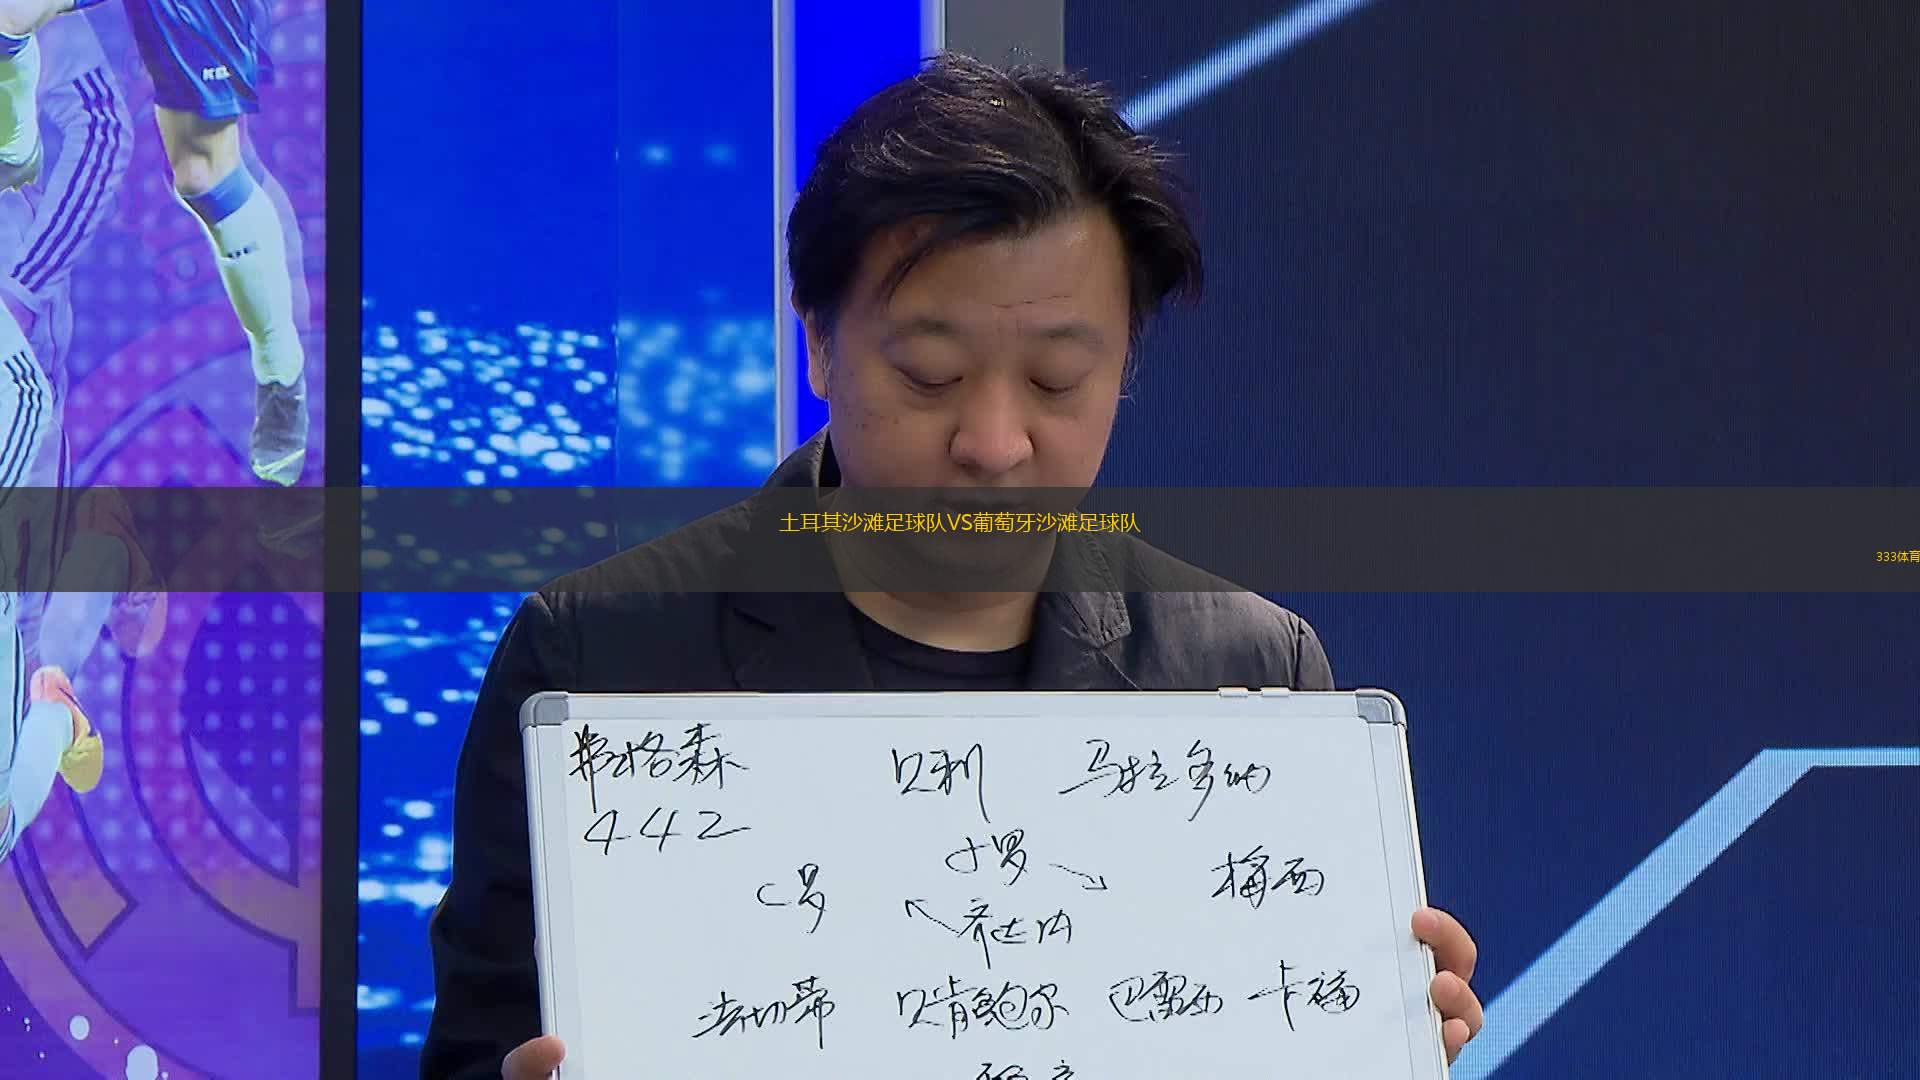 土耳其沙滩足球队VS葡萄牙沙滩足球队
333体育
弗格森 贝利 马拉多纳
442
小罗
C罗 梅西
齐达内
法切蒂 贝肯鲍尔 巴雷西 卡福